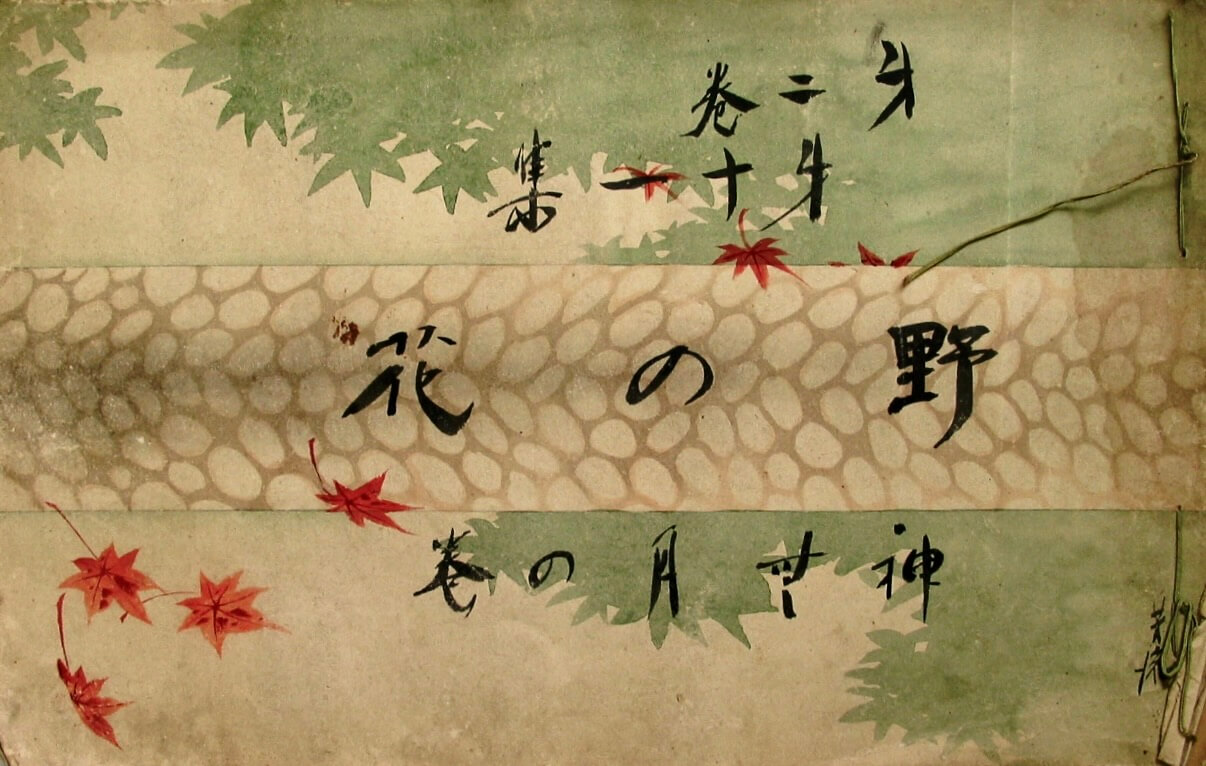 第二巻
第十一集
野の花
神無月の巻